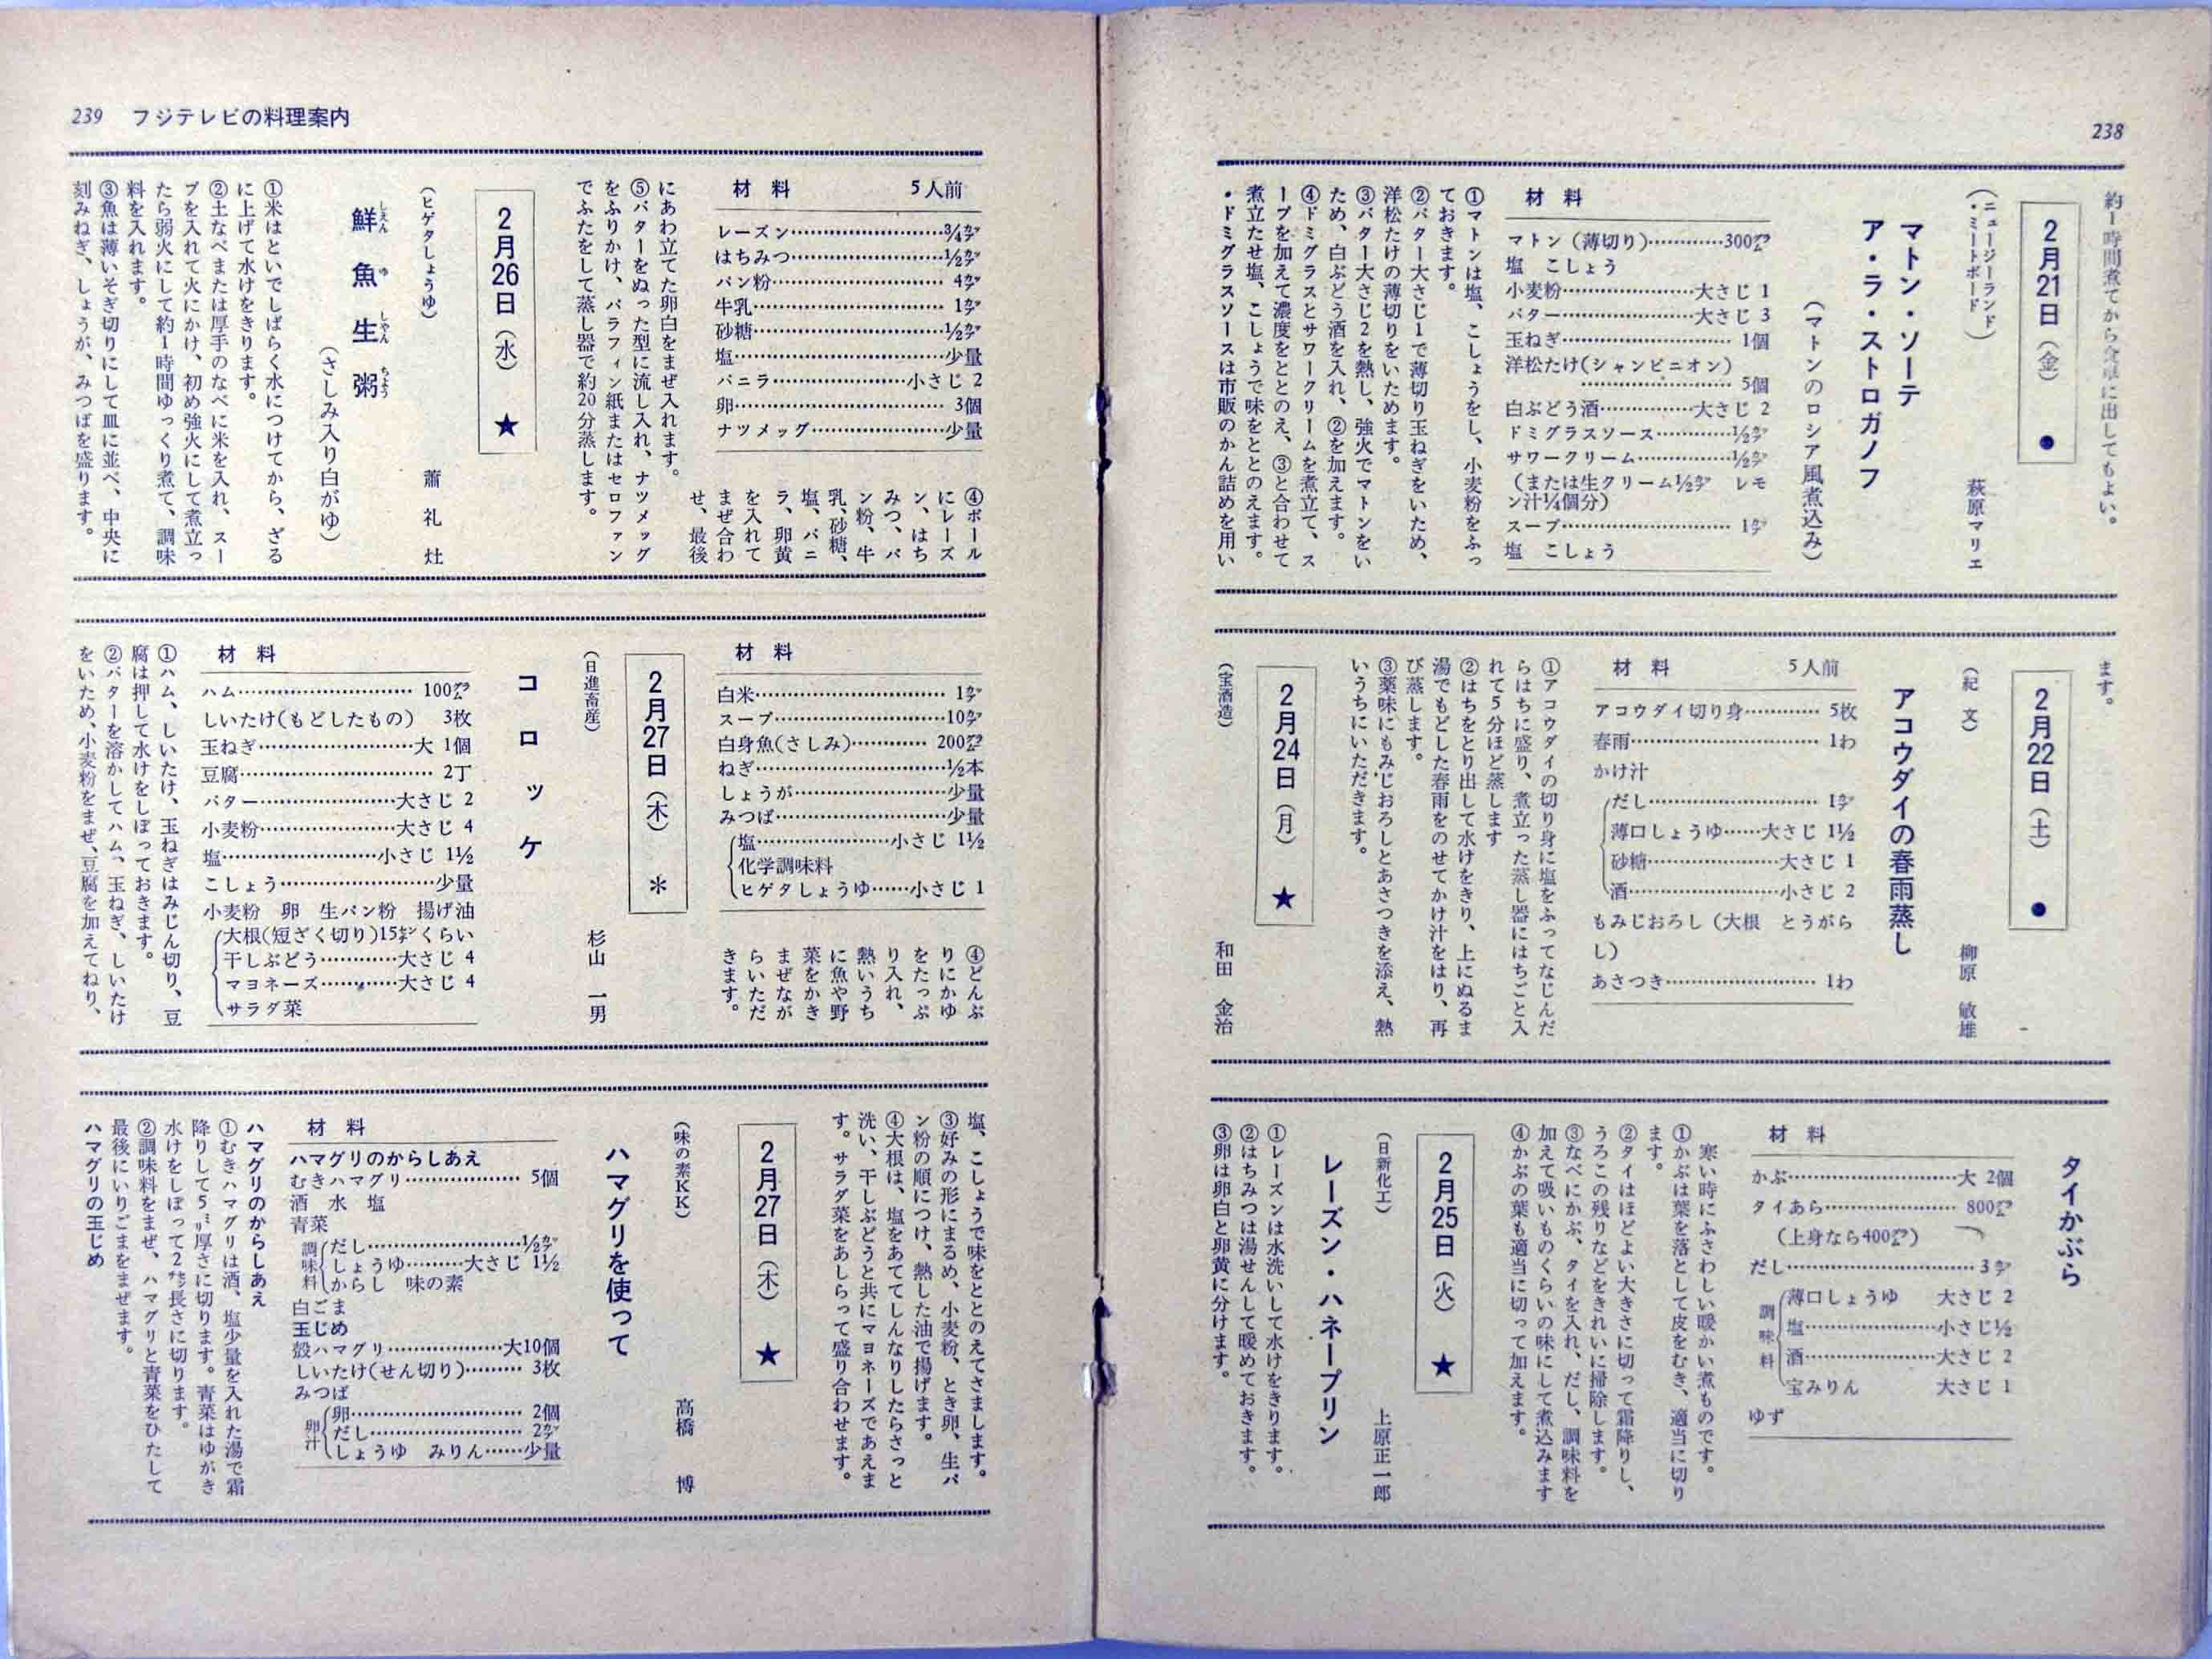 238
約1時間煮てから食卓に出してもよい。
2月21日（金）●
（ニュージーランド・ミートボード）
萩原マリエ
マトン・ソーテ
ア・ラ・ストロガノフ
（マトンのロシア風煮込み）
材 料
マトン（薄切り）…………300㌘
塩 こしょう
小麦粉…………………大さじ 1
バター…………………大さじ 3
玉ねぎ………………………… 1個
洋松たけ(シャンピニオン)
……………………… 5個
白ぶどう酒……………大さじ 2
ドミグラスソース…………½㌍
サワークリーム……………½㌍
（または生クリーム½㌍ レモ
ン汁¼個分）
スープ………………………… 1㌍
塩 こしょう
①マトンは塩、こしょうをし、小麦粉をふっ
ておきます。
②バター大さじ1で薄切り玉ねぎをいため、
洋松たけの薄切りをいためます。
③バター大さじ2を熱し、強火でマトンをい
ため、白ぶどう酒を入れ、②を加えます。
④ドミグラスとサワークリームを煮立て、ス
ープを加えて濃度をととのえ、③と合わせて
煮立たせ塩、こしょうで味をととのえます。
・ドミグラスソースは市販のかん詰めを用い
ます。
2月22日（土）●
（紀 文）
柳原 敏雄
アコウダイの春雨蒸し
材 料 5人前
アコウダイ切り身………… 5枚
春雨…………………………… 1わ
かけ汁
だし………………………… 1㌍
薄口しょうゆ……大さじ 1½
砂糖…………………大さじ 1
酒……………………小さじ 2
もみじおろし（大根 とうがら
し）
あさつき……………………… 1わ
①アコウダイの切り身に塩をふってなじんだ
らはちに盛り、煮立った蒸し器にはちごと入
れて5分ほど蒸します
②はちをとり出して水けをきり、上にぬるま
湯でもどした春雨をのせてかけ汁をはり、再
び蒸します。
③薬味にもみじおろしとあさつきを添え、熱
いうちにいただきます。
2月24日（月）★
（宝酒造）
和田 金治
タイかぶら
材 料
かぶ…………………………大 2個
タイあら…………………… 800㌘
（上身なら400㌘）
だし…………………………… 3㌍
調味料
薄口しょうゆ 大さじ 2
塩……………………小さじ½
酒……………………大さじ 2
宝みりん 大さじ 1
ゆず
寒い時にふさわしい暖かい煮ものです。
①かぶは葉を落として皮をむき、適当に切り
ます。
②タイはほどよい大きさに切って霜降りし、
うろこの残りなどをきれいに掃除します。
③なべにかぶ、タイを入れ、だし、調味料を
加えて吸いものくらいの味にして煮込みます
④かぶの葉も適当に切って加えます。
2月25日（火）★
（日新化工）
上原正一郎
レーズン・ハネープリン
①レーズンは水洗いして水けをきります。
②はちみつは湯せんして暖めておきます。
③卵は卵白と卵黄に分けます。
239 フジテレビの料理案内
材 料 5人前
レーズン………………………¾㌍
はちみつ………………………½㌍
パン粉………………………… 4㌍
牛乳…………………………… 1㌍
砂糖……………………………½㌍
塩………………………………少量
バニラ…………………小さじ 2
卵……………………………… 3個
ナツメッグ……………………少量
④ボール
にレーズ
ン、はち
みつ、パ
ン粉、牛
乳、砂糖、
塩、バニ
ラ、卵黄
を入れて
まぜ合わ
せ、最後
にあわ立てた卵白をまぜ入れます。
⑤バターをぬった型に流し入れ、ナツメッグ
をふりかけ、パラフィン紙またはセロファン
でふたをして蒸し器で約20分蒸します。
2月26日（水）★
（ヒゲタしょうゆ）
蕭 礼 灶
鮮魚生粥
しえん ゆ しやん ちよう
（さしみ入り白がゆ）
①米はといでしばらく水につけてから、ざる
に上げて水けをきります。
②土なべまたは厚手のなべに米を入れ、スー
プを入れて火にかけ、初め強火にして煮立っ
たら弱火にして約1時間ゆっくり煮て、調味
料を入れます。
③魚は薄いそぎ切りにして皿に並べ、中央に
刻みねぎ、しょうが、みつばを盛ります。
材 料
白米…………………………… 1㌍
スープ…………………………10㌍
白身魚(さしみ)………… 200㌘
ねぎ……………………………½本
しょうが………………………少量
みつば…………………………少量
塩…………………小さじ 1½
化学調味料
ヒゲタしょうゆ……小さじ 1
④どんぶ
りにかゆ
をたっぷ
り入れ、
熱いうち
に魚や野
菜をかき
まぜなが
らいただ
きます。
2月27日（木）＊
（日進畜産）
杉山 一男
コロッケ
材 料
ハム……………………… 100㌘
しいたけ(もどしたもの) 3枚
玉ねぎ……………………大 1個
豆腐………………………… 2丁
バター…………………大さじ 2
小麦粉…………………大さじ 4
塩……………………小さじ 1½
こしょう……………………少量
小麦粉 卵 生パン粉 揚げ油
大根(短ざく切り)15㌢くらい
干しぶどう…………大さじ 4
マヨネーズ…………大さじ 4
サラダ菜
①ハム、しいたけ、玉ねぎはみじん切り、豆
腐は押して水けをしぼっておきます。
②バターを溶かしてハム、玉ねぎ、しいたけ
をいため、小麦粉をまぜ、豆腐を加えてねり、
塩、こしょうで味をととのえてさまします。
③好みの形にまるめ、小麦粉、とき卵、生パ
ン粉の順につけ、熱した油で揚げます。
④大根は、塩をあててしんなりしたらさっと
洗い、干しぶどうと共にマヨネーズであえま
す。サラダ菜をあしらって盛り合わせます。
2月27日（木）★
（味の素KK）
高橋 博
ハマグリを使って
材 料
ハマグリのからしあえ
むきハマグリ……………… 5個
酒 水 塩
青菜
調味料
だし………………………½㌍
しょうゆ………大さじ 1½
からし 味の素
白ごま
玉じめ
殻ハマグリ………………大10個
しいたけ(せん切り)……… 3枚
みつば
卵汁
卵………………………… 2個
だし……………………… 2㌍
しょうゆ みりん……少量
ハマグリのからしあえ
①むきハマグリは酒、塩少量を入れた湯で霜
降りして5㍉厚さに切ります。青菜はゆがき
水けをしぼって2㌢長さに切ります。
②調味料をまぜ、ハマグリと青菜をひたして
最後にいりごまをまぜます。
ハマグリの玉じめ